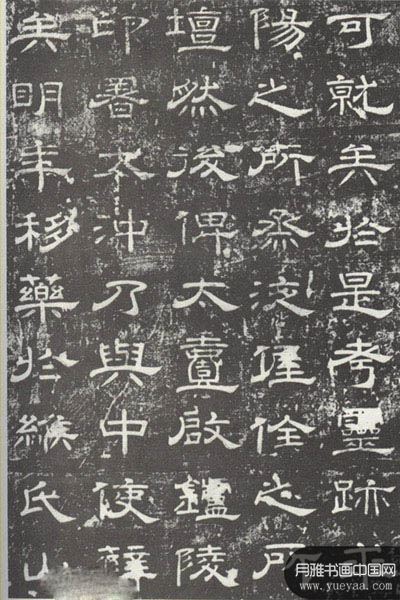 可就矣於是考靈跡
陽之所烝液偓佺之所
壇然後俾太壹啟陵
印署太沖乃與中使薛
矣明年移藥於緱氏山
月雅书画中国网
www.yueyaa.com